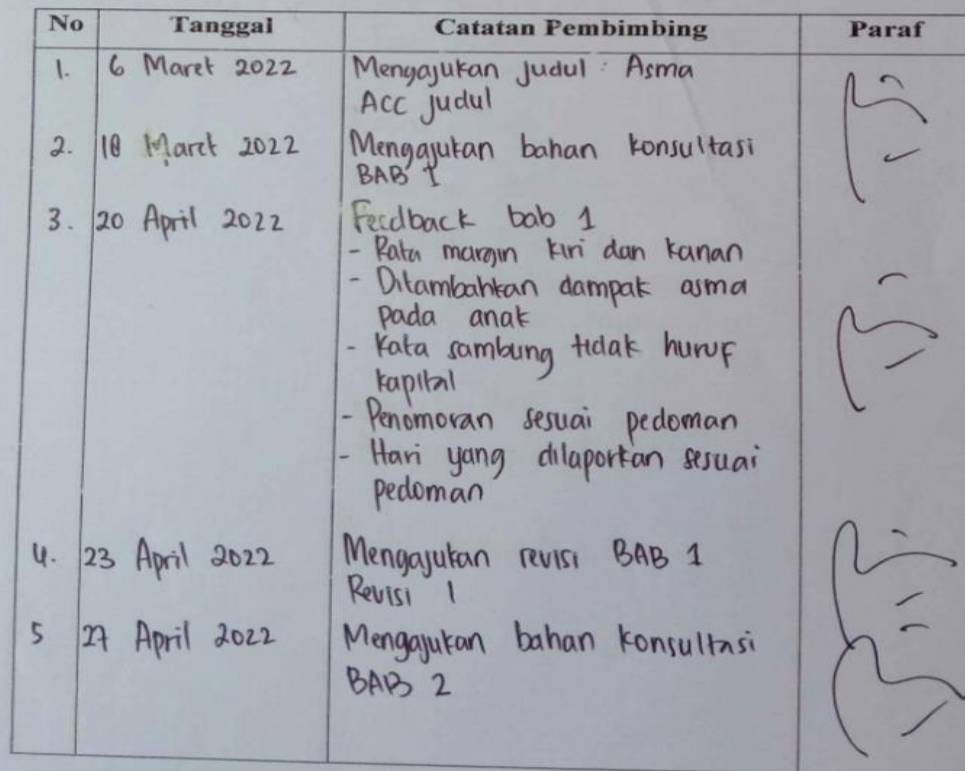 No Tanggal Catatan Pembimbing Paraf
1. 6 Maret 2022 Mengajukan judul : Asma
ACC judul
2. 18 Maret 2022 Mengajukan bahan konsultasi
BAB 1
3. 20 April 2022 Feedback bab 1
- Rata margin kiri dan kanan
- Ditambahkan dampak asma
pada anak
- Kata sambung tidak huruf
kapital
- Penomoran sesuai pedoman
- Hari yang dilaporkan sesuai
pedoman
4. 23 April 2022 Mengajukan revisi BAB 1
Revisi 1
5 27 April 2022 Mengajukan bahan konsultasi
BAB 2